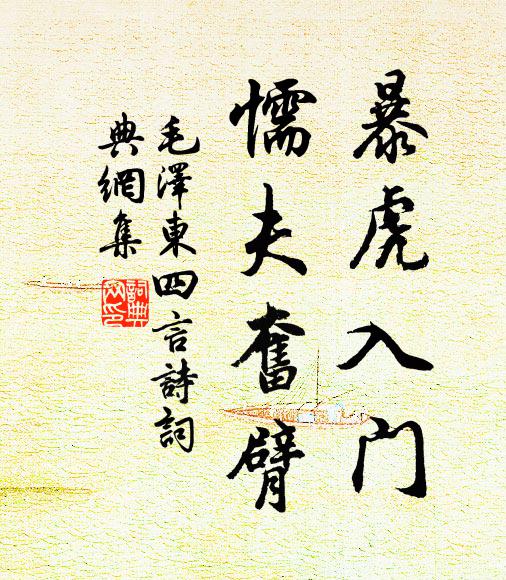 暴虎入门
懦夫奮臂
毛澤東四言詩詞
典網集
詞典
网印